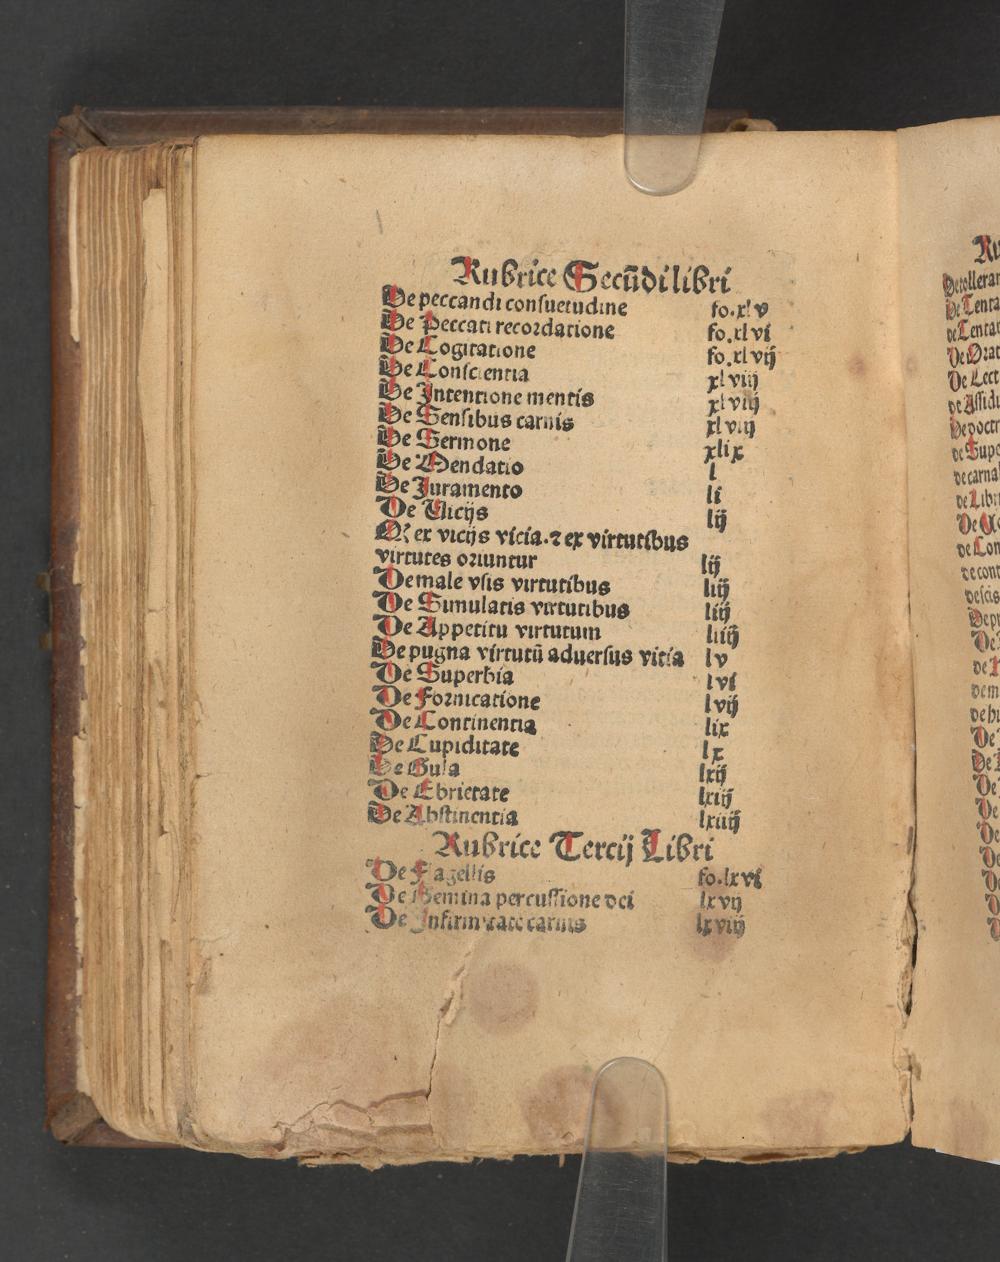 Rubrice Secūdi libri
De peccandi consuetudine fo.xlv
De Peccati recordatione fo.xlvi
De Cogitatione fo.xlvij
De Conscientia xlviij
De Intentione mentis xlviij
De Sensibus carnis xlviij
De Sermone xlix
De Mendatio l
De Juramento li
De Vicijs lij
Qƺ ex vicijs vicia.⁊ ex virtutibus
virtutes oriuntur lij
De male vsis virtutibus liij
De Simulatis virtutibus liij
De Appetitu virtutum liiij
De pugna virtutū aduersus vitia lv
De Superbia lvi
De Fornicatione lvij
De Continentia lix
De Cupiditate lx
De Gula lxij
De Ebrietate lxiij
De Abstinentia lxiiij
Rubrice Tercij Libri
De Flagellis fo.lxvi
De Gemina percussione dei lxvij
De Infirmitate carnis lxviij
Ru
De tolleran
De Tenta
de Tentat
De Orat
De Lect
de Assidu
De doctr
de Supe
de carna
de Libr
de Con
de cont
de scis
De pr